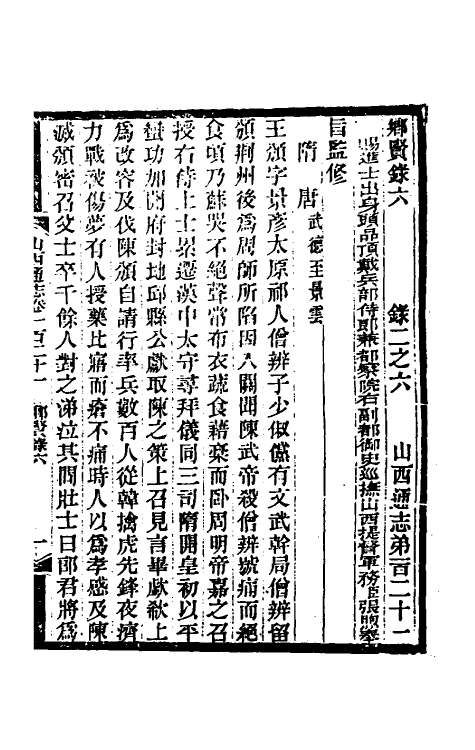 鄉賢錄六　錄二之六　山西通志弟一百二十一
賜進士出身頭品頂戴兵部侍郎兼都察院右副都御史巡撫山西提督軍務臣張煦奉
旨監修
隋　唐武德至景雲
王頒字景彥太原祁人僧辨子少俶儻有文武幹局僧辨留
頒荆州後爲周師所陷因入關聞陳武帝殺僧辨號痛而絕
食頃乃蘇哭不絕聲常布衣蔬食藉藁而臥周明帝嘉之召
授右侍上士累遷漢中太守尋拜儀同三司隋開皇初以平
蠻功加開府封地邱縣公獻取陳之策上召見言畢歔欷上
爲改容及伐陳頒自請行率兵數百人從韓擒虎先鋒夜濟
力戰被傷夢有人授藥比寤而瘡不痛時人以爲孝感及陳
滅頒密召父士卒千餘人對之涕泣其閒壯士曰郎君將爲
山西通志卷一百二十一　鄉賢錄六　一